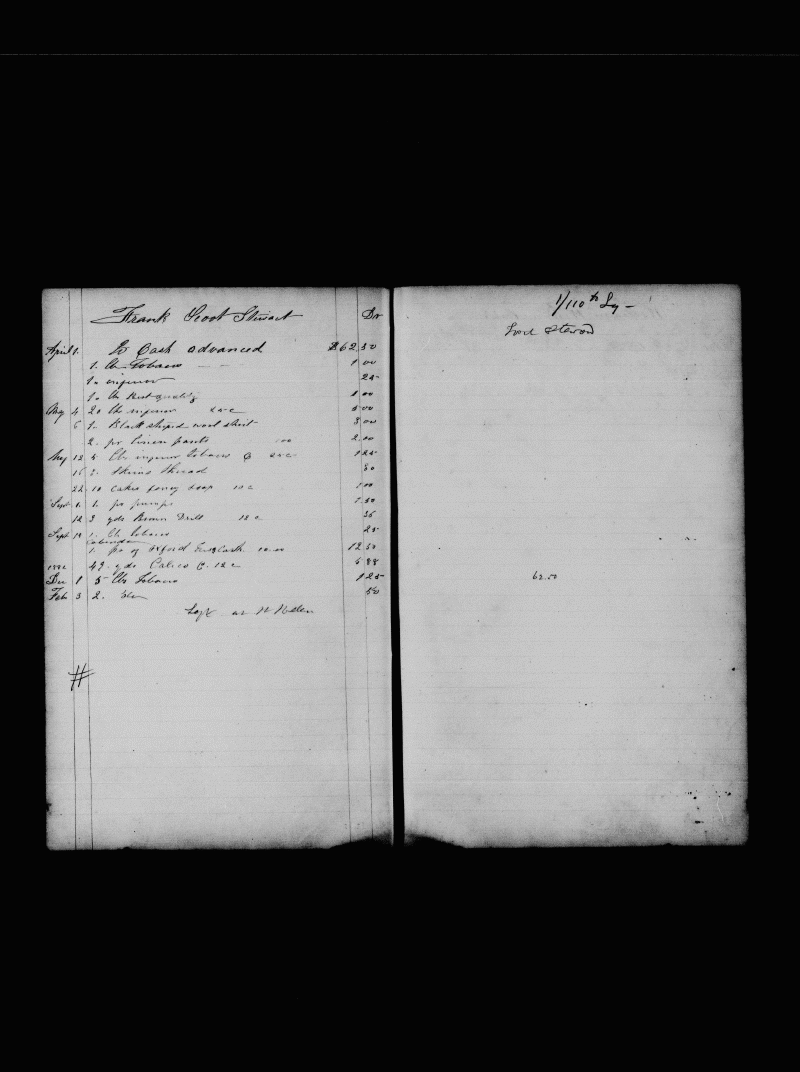 Frank Scoot Stewart Dr
April 1. To Cash advanced $62.50
1. lb Tobacco 1 00
1 " inferior 25
1 " lb Best quality 1 00
May 4 20 lbs inferior 25c 5 00
6 1. Black striped wool shirt 3 00
2. pr linen pants 100 2 00
May 12 5 lbs inferior Tobacco @ 25c 1 25
16 2. Skeins Thread 50
22 10 cakes fancy soap 10c 1 00
Sept 1. 1. pr pumps 1.50
12 3 yds Brown Drill 12c 36
Sept 19 1. lb tobacco 25
1. pr of Oxford 12 50
1882 49 yds Calico @. 12c 5 88
Dec 1 5 lbs Tobacco 1 25
Feb 3 2. 50
#
1/110th Sy -
62.50